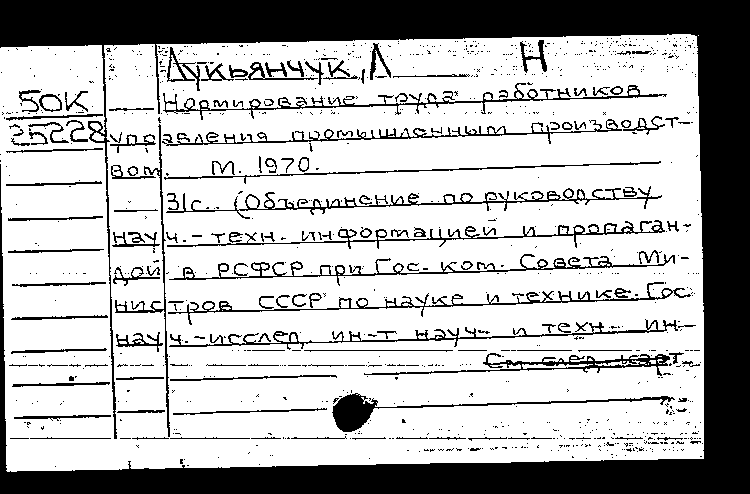 Лукьянчук, Л Н
50К Нормирование труда работников
25228 управления промышленным производст-
вом. М., 1970.
31с. (Объединение по руководству
науч.-техн. информацией и пропаган-
дой в РСФСР при Гос. ком. Совета Ми-
нистров СССР по науке и технике. Гос
науч.-исслед. ин-т науч- и техн- ин-
См. след. карт.